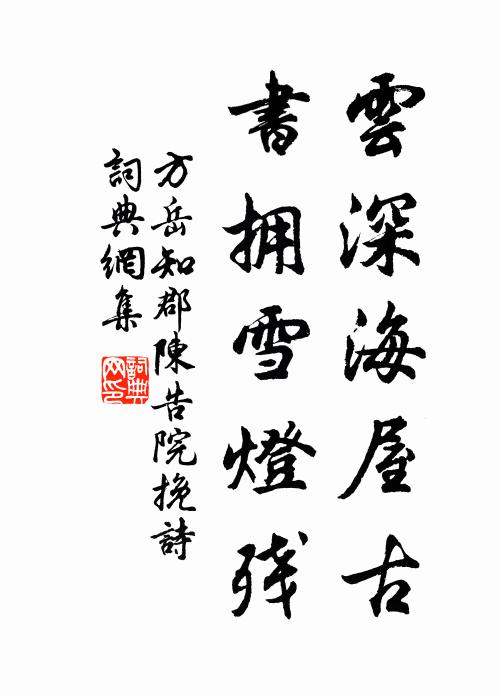 雲深海屋古
書拥雪燈残
方岳知郡陳告院挽詩
詞典網集
詞典网印